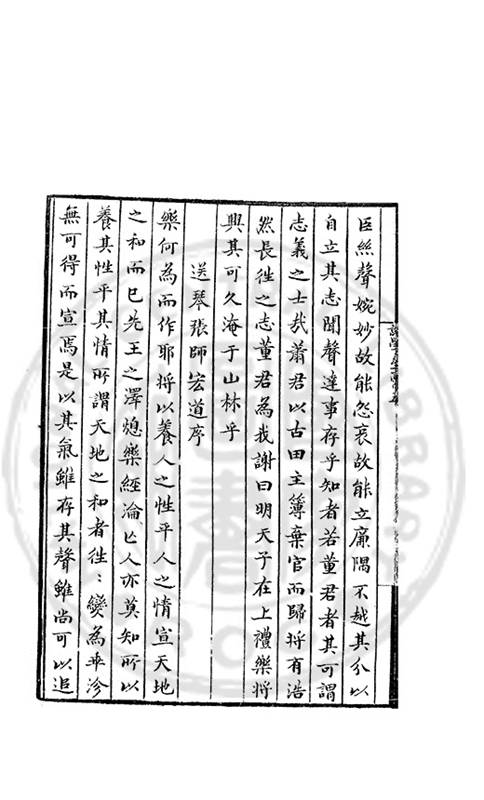 臣絲聲婉妙故能怨哀故能立廉隅不越其分以
自立其志聞聲達事存乎知者若董君者其可謂
志義之士哉蕭君以古田主簿棄官而歸將有浩
然長徃之志董君為我謝曰明天子在上禮樂將
興其可久淹于山林乎
送琴張師宏道序
樂何為而作耶將以養人之性平人之情宣天地
之和而已先王之澤熄樂經淪亡人亦莫知所以
養其性平其情所謂天地之和者徃〻變為乖沴
無可得而宣焉是以其氣雖存其聲雖尚可以追